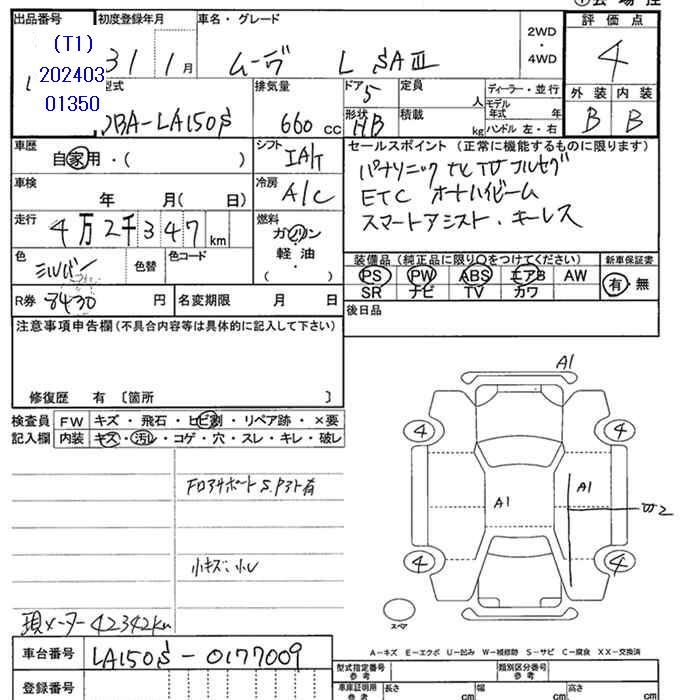 ①会場控
出品番号 初度登録年月 車名・グレード 評価点
(T1)
202403
01350
31 1月 ムーヴ L SAⅢ 2WD・4WD 4
型式 排気量 ドア 定員 ディーラー・並行 外装 内装
DBA-LA150S 660cc 5 人 モデル年式 年 B B
形状 HB 積載 kg ハンドル 左・右
車歴 自家用・( ) シフト IAT セールスポイント (正常に機能するものに限ります)
車検 年 月( 日) 冷房 A/C パナソニック ナビ TV フルセグ
ETC オートハイビーム
スマートアシスト・キーレス
走行 4万2千347km 燃料 ガソリン・軽油・( )
色 シルバー 色替 色コード
装備品 (純正品に限り○をつけてください) 新車保証書
PS PW ABS エアB AW 有・無
SR ナビ TV カワ
R券 8430円 名変期限 月 日 後日品
注意事項申告欄(不具合内容等は具体的に記入して下さい)
修復歴 有 〔箇所 〕
検査員記入欄 FW キズ・飛石・ヒビ割・リペア跡・×要
内装 キズ・汚レ・コゲ・穴・スレ・キレ・破レ
A1
4 4
A1 A1 W2
4 4
スペア
FロアサポートS.Pヌケ有
小キズ、小U
現メーター42342km
A-キズ E-エクボ U-凹み W-補修跡 S-サビ C-腐食 XX-交換済
車台番号 LA150S-0177009
登録番号
型式指定番号 参考 類別区分番号 参考
車庫証明用 参考 長さ cm 幅 cm 高さ cm